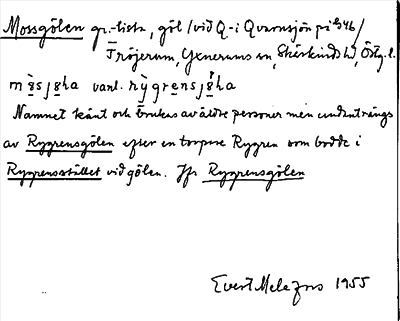 Mossgölen gr.-lista, göl/vid Q-i Qvarnsjön på §46/
Fröjerum, Yxnerums sn, Skärkinds hd, Östg. l.
vanl.
Namnet känt och brukas av äldre personer men undanträngs
av Rygrensgölen efter en torpare Rygren som bodde i
Rygrensstället vid gölen. Jfr Rygrensgölen
Evert Melefors 1955